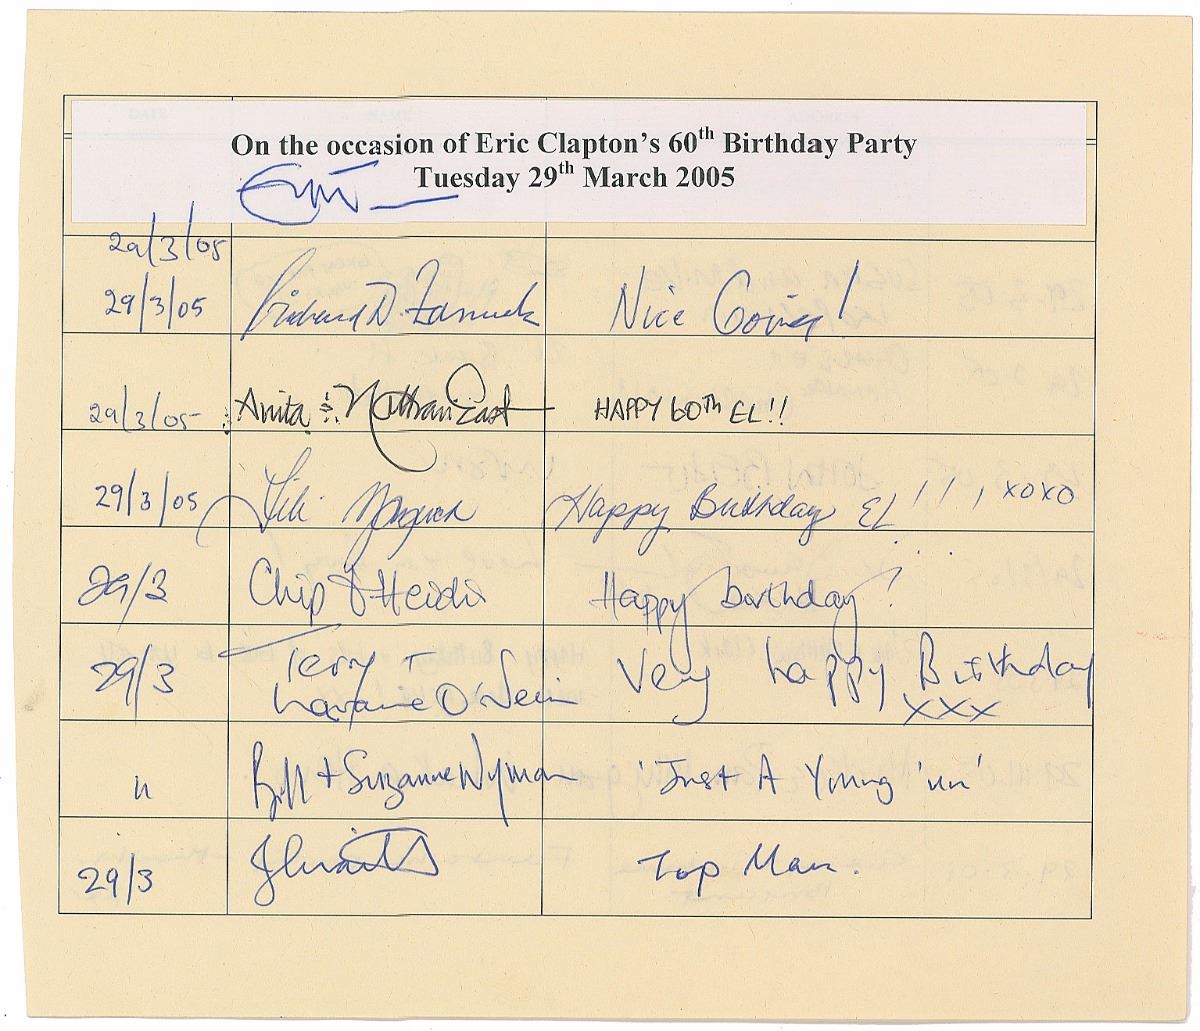 On the occasion of Eric Clapton's 60th Birthday Party
Tuesday 29th March 2005
29/3/05
29/3/05 Richard D. Zanuck Nice Going!
29/3/05 Anita & Nathan East HAPPY 60TH EL!!
29/3/05 Lili Happy Birthday EL!!, xoxo
29/3 Chip & Heidi Happy birthday!
29/3 Terry Very happy Birthday
Larraine O'Neill XXX
" Bill + Suzanne Wyman 'Just A Young 'un'
29/3 Top Man.